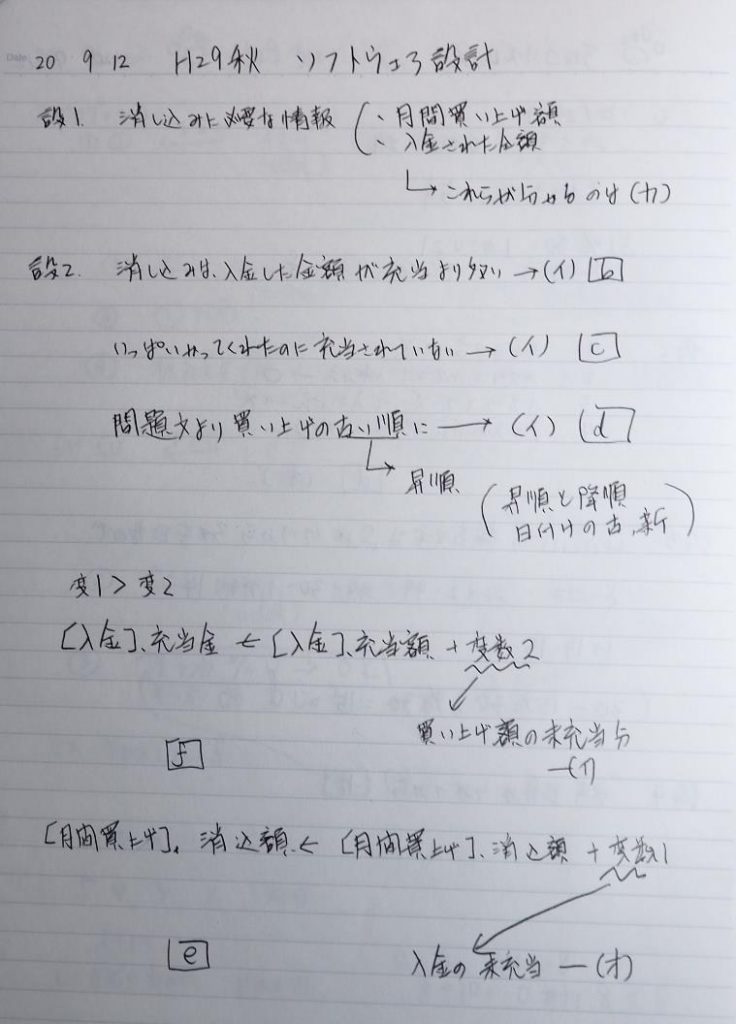 20 9 12 H29秋 ソフトウェア設計
設1. 消し込みに必要な情報 (・月間買い上げ額
・入金された金額
→ これらが分かるのは (カ)
設2. 消し込みは、入金した金額が充当より多い → (イ) b
いっぱいやってくれたのに充当されていない → (イ) c
問題文より買い上げの古い順に → (イ) d
→ 昇順 (昇順と降順
日付けの古,新)
変1 > 変2
[入金].充当金 ← [入金].充当額 + 変数2
買い上げ額の未充当分
f
[月間買上げ].消込額 ← [月間買上げ].消込額 + 変数1
e
入金の未充当 ― (オ)